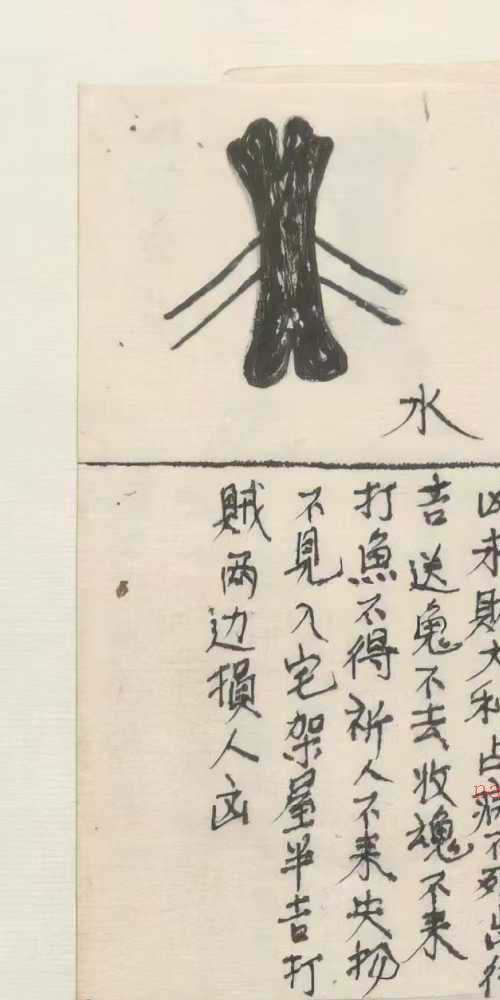 水
凶求財大利占病不死出行
吉送鬼不去收魂不来
打魚不得祈人不来失物
不見入宅架屋半吉打
賊两边損人凶
na